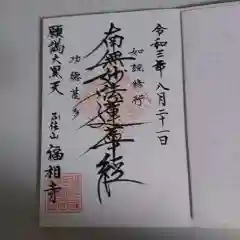 令和三年八月二十一日
如說修行
南無妙法蓮華經
功德甚多
願満大黒天
正住山 福相寺